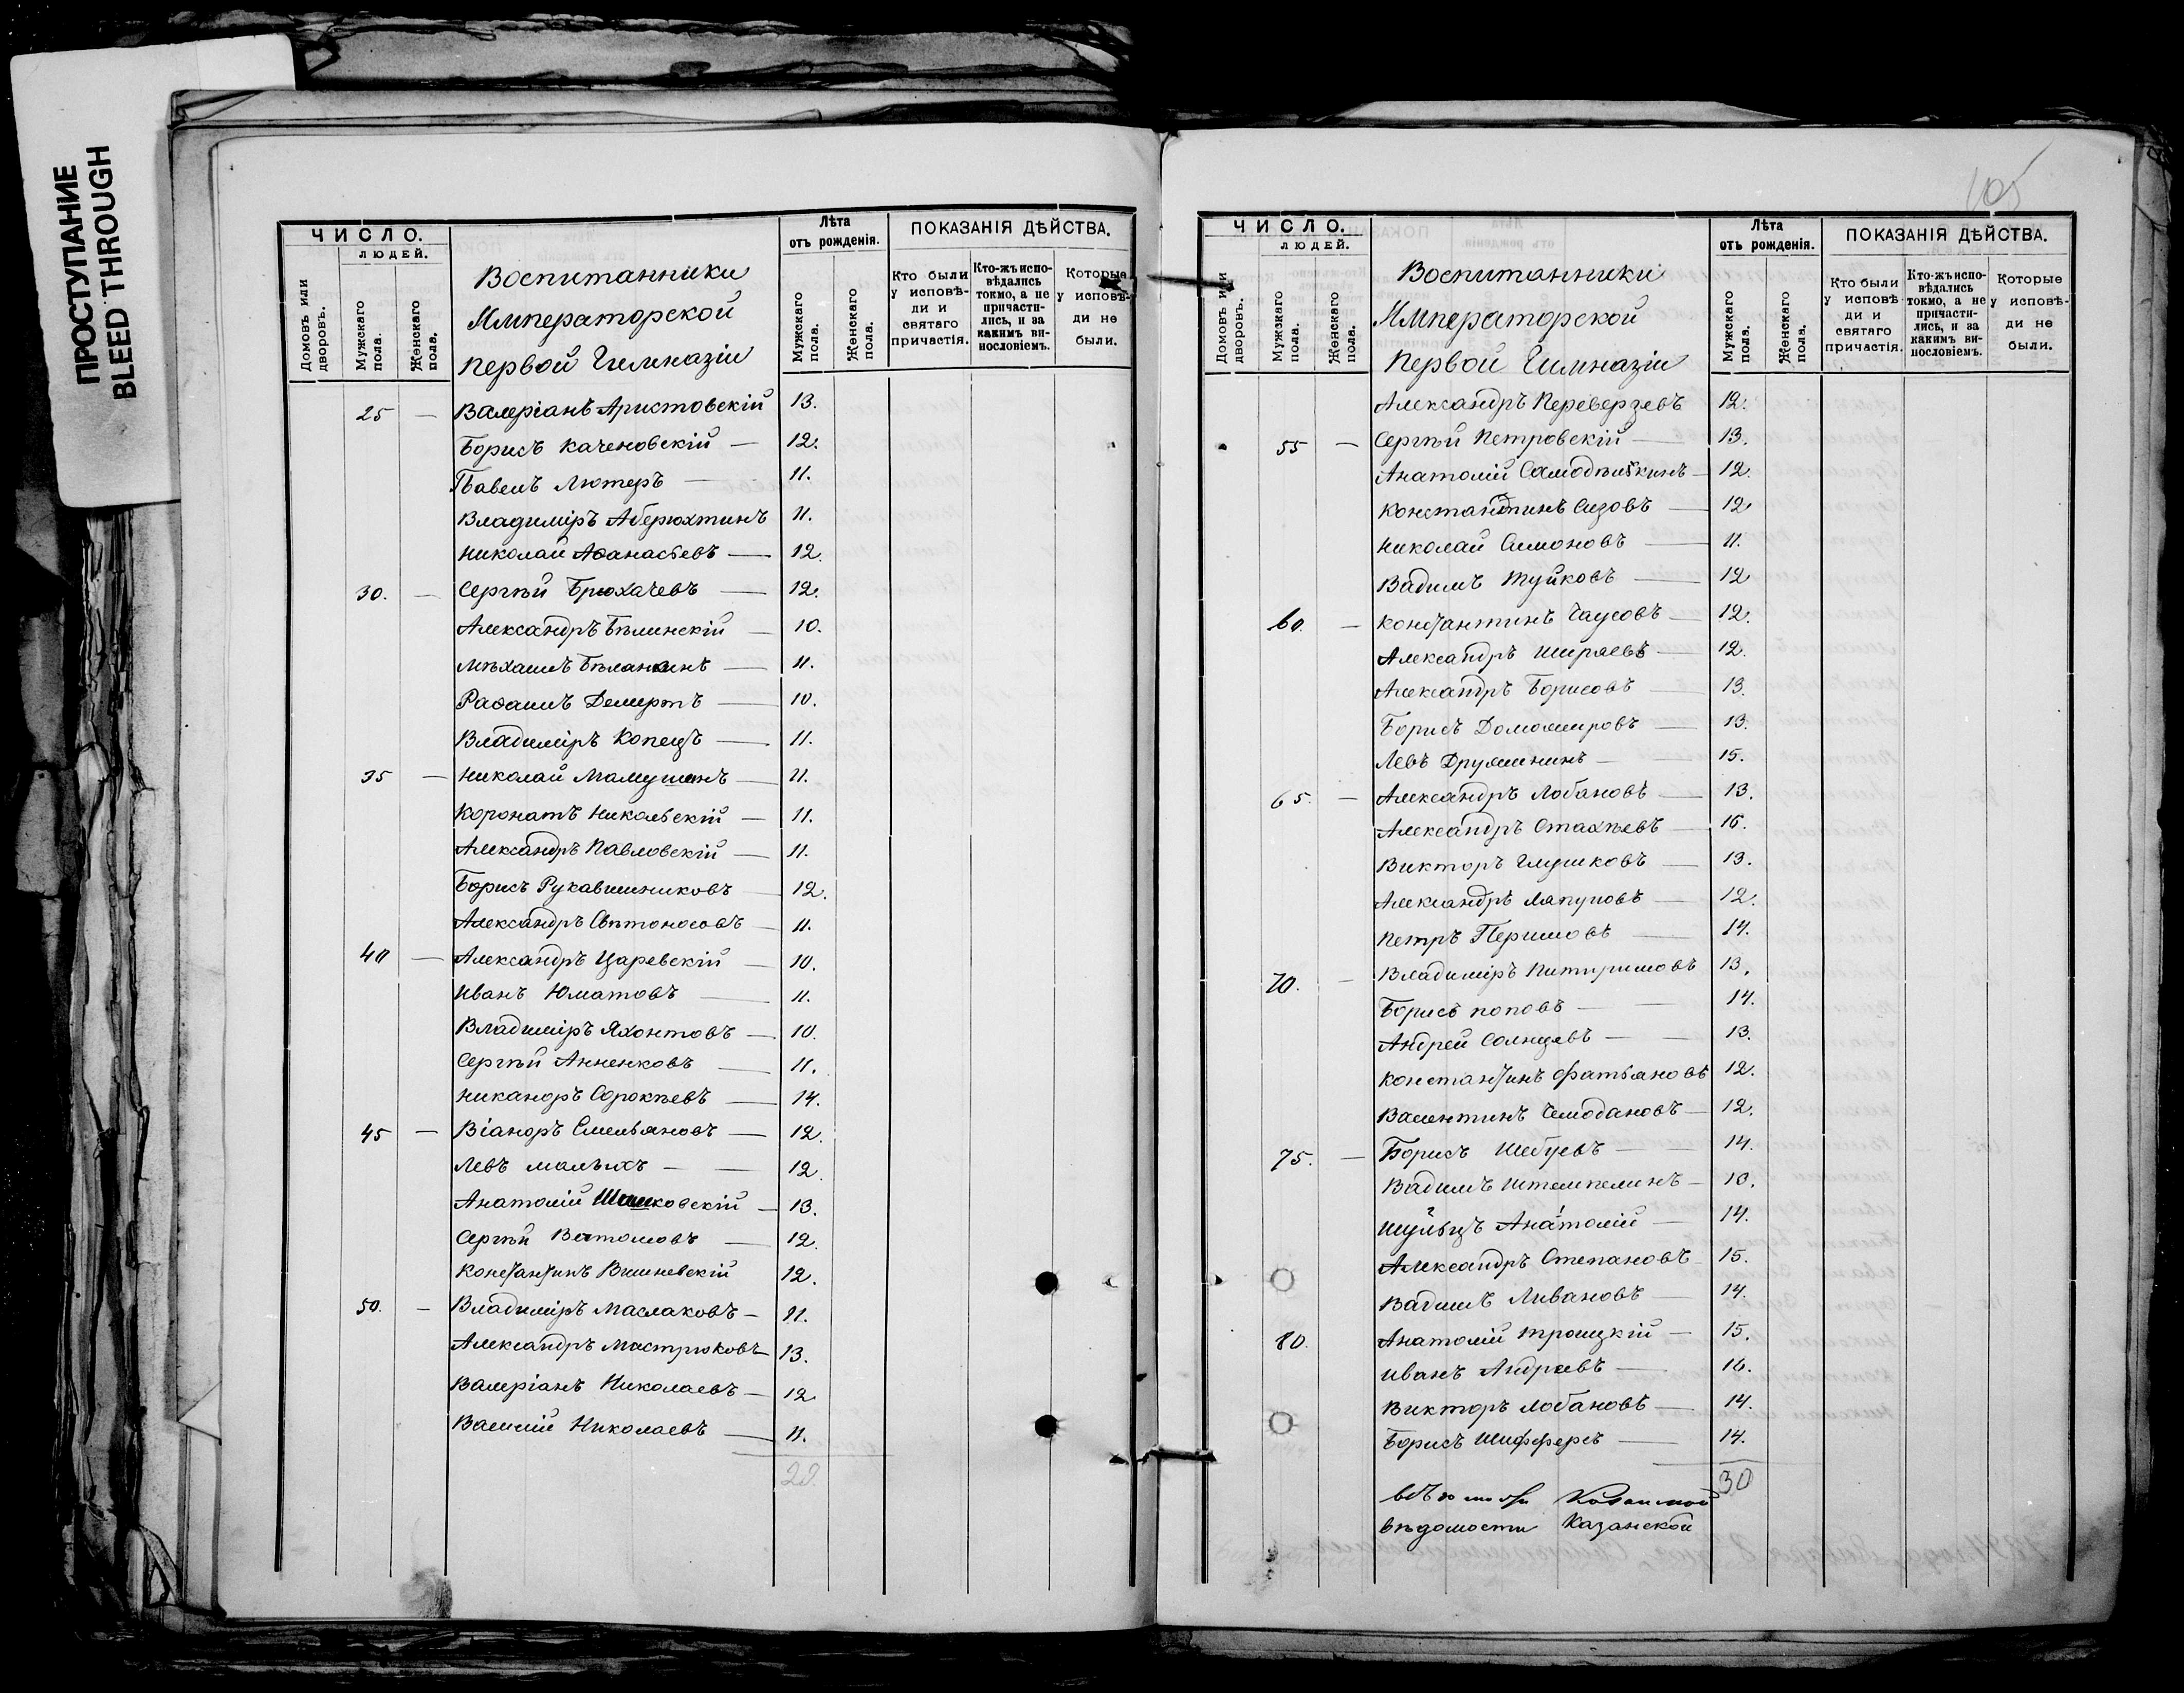 ПРОСТУПАНИЕ
BLEED THROUGH
ЧИСЛО.
ЛЮДЕЙ.
Домовъ или дворовъ.
Мужскаго пола.
Женскаго пола.
Воспитанники
Императорской
первой Гимназіи
Лѣта
отъ рожденія.
Мужскаго пола.
Женскаго пола.
ПОКАЗАНІЯ ДѢЙСТВА.
Кто были
у исповѣ-
ди и
святаго
причастія.
Кто-жъ испо-
вѣдались
токмо, а не
причасти-
лись, и за
какимъ ви-
нословіемъ.
Которые
у исповѣ-
ди не
были.
25 — Валеріанъ Аристовскій 13.
Борисъ Каченовскій — 12.
Павелъ Лютеръ — 11.
Владиміръ Аберюхтинъ 11.
Николай Аѳанасьевъ — 12.
30. — Сергѣй Брюхачевъ — 12.
Александръ Бѣлинскій — 10.
Бѣланинъ — 11.
Рафаилъ Демертъ — 10.
Владиміръ Копецъ — 11.
35 — Николай Мамушинъ — 11.
Коронатъ Никольскій — 11.
Александръ Павловскій — 11.
Борисъ Рукавишниковъ — 12.
Александръ Свѣтоносовъ — 11.
40 — Александръ Царевскій — 10.
Иванъ Юматовъ — 11.
Владиміръ Яхонтовъ — 10.
Сергѣй Анненковъ — 11.
Никаноръ Сорокѣевъ — 14.
45 — Віаноръ Емельяновъ — 12.
Левъ Малыхъ — — 12.
Анатолій — 13.
Сергѣй — 12.
Константинъ Вишневскій 12.
50. — Владиміръ Маслаковъ — 11.
Александръ Мастрюковъ — 13.
Валеріанъ Николаевъ — 12.
Василій Николаевъ — 11.
29.
105
ЧИСЛО.
ЛЮДЕЙ.
Домовъ или дворовъ.
Мужскаго пола.
Женскаго пола.
Воспитанники
Императорской
Первой Гимназіи
Лѣта
отъ рожденія.
Мужскаго пола.
Женскаго пола.
ПОКАЗАНІЯ ДѢЙСТВА.
Кто были
у исповѣ-
ди и
святаго
причастія.
Кто-жъ испо-
вѣдались
токмо, а не
причасти-
лись, и за
какимъ ви-
нословіемъ.
Которые
у исповѣ-
ди не
были.
Александръ Переверзевъ 12.
55 — Сергѣй Петровскій — 13.
Анатолій Самодѣлкинъ — 12.
Константинъ Сизовъ — 12
Николай Симоновъ — 11.
Вадимъ Туйковъ — 12
60. — Константинъ Чаусовъ — 12.
Александръ Ширяевъ — 12.
Александръ Борисовъ — 13.
Борисъ Доможировъ — 13.
Левъ Дружининъ — 15.
65. — Александръ Лобановъ — 13.
Александръ Стахѣевъ — 16.
Викторъ Глушковъ — 13.
Александръ Ляпуновъ — 12.
Петръ Перимовъ — 14.
70. — Владиміръ Питиримовъ 13.
Борисъ Поповъ — — 14.
Андрей Солнцевъ — — 13.
Константинъ Фатьяновъ 12.
Валентинъ Чемодановъ — 12.
75. — Борисъ Шебуевъ — — 14.
Вадимъ Штемпелинъ — 13.
Шульцъ Анатолій — 14.
Александръ Степановъ — 15.
Вадимъ Ливановъ — 14.
80. Анатолій Троицкій — 15.
Иванъ Андреевъ — 16.
Викторъ Лобановъ — 14.
Борисъ Шифферсъ — 14.
30
вѣдомости Казанской